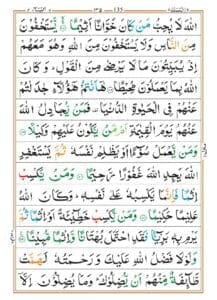 اللّٰهَ لَا يُحِبُّ مَنْ كَانَ خَوَّانًا اَثِيْمًا ۙ يَّسْتَخْفُوْنَ
مِنَ النَّاسِ وَلَا يَسْتَخْفُوْنَ مِنَ اللّٰهِ وَهُوَ مَعَهُمْ
اِذْ يُبَيِّتُوْنَ مَا لَا يَرْضٰى مِنَ الْقَوْلِ ؕ وَكَانَ
اللّٰهُ بِمَا يَعْمَلُوْنَ مُحِيْطًا هٰۤاَنْتُمْ هٰۤؤُلَآءِ جٰدَلْتُمْ
عَنْهُمْ فِى الْحَيٰوةِ الدُّنْيَا فَمَنْ يُّجَادِلُ اللّٰهَ
عَنْهُمْ يَوْمَ الْقِيٰمَةِ اَمْ مَّنْ يَّكُوْنُ عَلَيْهِمْ وَكِيْلًا
وَمَنْ يَّعْمَلْ سُوْٓءًا اَوْ يَظْلِمْ نَفْسَهٗ ثُمَّ يَسْتَغْفِرِ
اللّٰهَ يَجِدِ اللّٰهَ غَفُوْرًا رَّحِيْمًا وَمَنْ يَّكْسِبْ
اِثْمًا فَاِنَّمَا يَكْسِبُهٗ عَلٰى نَفْسِهٖ وَكَانَ اللّٰهُ
عَلِيْمًا حَكِيْمًا وَمَنْ يَّكْسِبْ خَطِيْٓئَةً اَوْ اِثْمًا ثُمَّ
يَرْمِ بِهٖ بَرِيْٓئًا فَقَدِ احْتَمَلَ بُهْتَانًا وَّاِثْمًا مُّبِيْنًا
وَلَوْلَا فَضْلُ اللّٰهِ عَلَيْكَ وَرَحْمَتُهٗ لَهَمَّتْ
طَّآئِفَةٌ مِّنْهُمْ اَنْ يُّضِلُّوْكَ وَمَا يُضِلُّوْنَ اِلَّاۤ